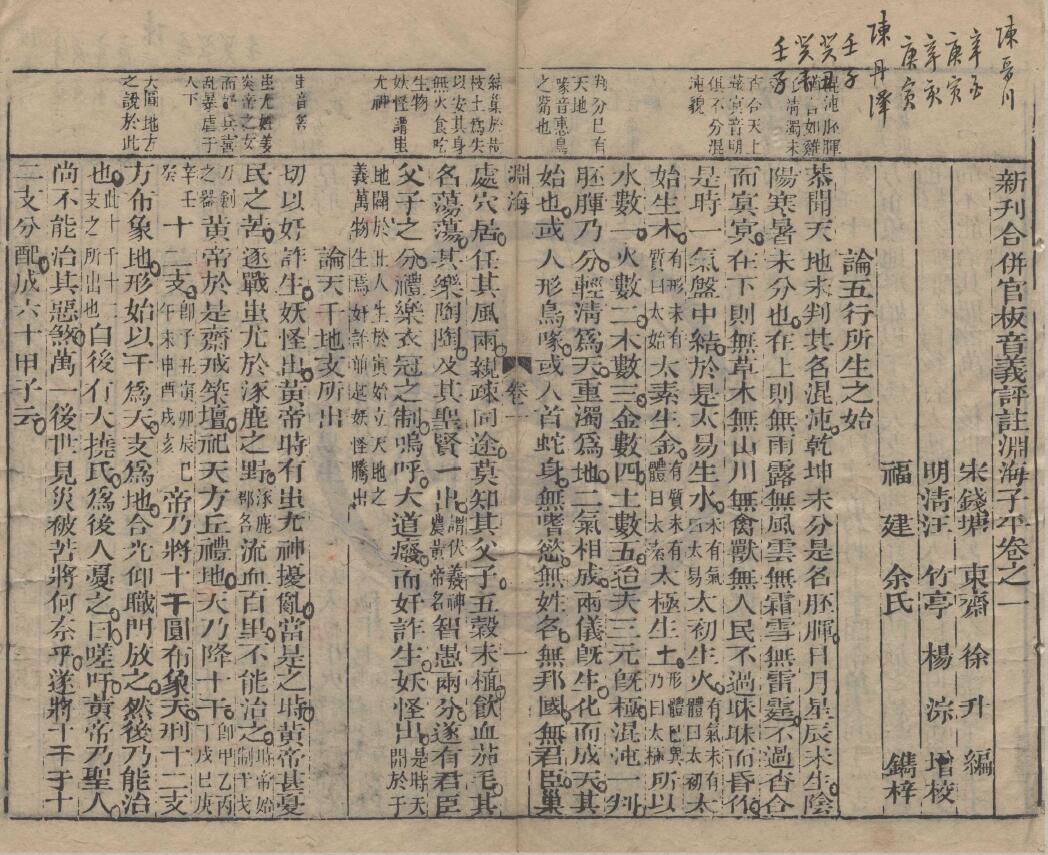 陳
辛
庚寅
辛亥
庚寅
陳丹澤
壬子
癸丑
癸
壬子
新刊合併官板音義評註淵海子平卷之一
宋錢塘 東齋 徐升 編
明清江 竹亭 楊淙 增校
福建 余氏 鐫梓
論五行所生之始
恭聞天地未判其名混沌乾坤未分是名胚腪日月星辰未生陰
陽寒暑未分也在上則無雨露無風雲無霜雪無雷霆不過杳合
而冥冥在下則無草木無山川無禽獸無人民不過昧昧而昏作
是時一氣盤中結於是太易生水未有氣曰太易太初生火有氣未有體曰太初太
始生木有形未有質曰太始太素生金有質未有體曰太素太極生土形體已具乃曰太極所以
水數一火數二木數三金數四土數五迨夫三元既極混沌一判
胚腪乃分輕清爲天重濁爲地二氣相成兩儀既生化而成天其
始也或人形鳥喙或人首蛇身無嗜慾無姓名無邦國無君臣巢
淵海 卷一 一
處穴居任其風雨親疎同途莫知其父子五穀未植飲血茹毛其
名蕩蕩其樂陶陶及其聖賢一出謂伏羲神農黃帝名智愚兩分遂有君臣
父子之分禮樂衣冠之制嗚呼大道廢而奸詐生妖怪出是時天開於子
地闢於丑人生於寅始立天地之義萬物生焉奸詐並起妖怪騰出
論天干地支所出
切以奸詐生妖怪出黃帝時有蚩尤神擾亂當是之時黃帝甚憂
民之苦遂戰蚩尤於涿鹿之野涿鹿郡名流血百里不能治之時帝始制干戈
刀劍之器黃帝於是齋戒築壇祀天方丘禮地天乃降十干即甲乙丙丁戊巳庚
辛壬癸十二支即子丑寅卯辰巳午未申酉戌亥帝乃將十干圓布象天形十二支
方布象地形始以干爲天支爲地合光仰職門放之然後乃能治
也此十干十二支之所出也自後有大撓氏爲後人憂之曰嗟吁黃帝乃聖人
尚不能治其惡煞萬一後世見災被苦將何奈乎遂將十干十
二支分配成六十甲子云
沌貌
俱不分混
冥音明
杳合天上
氏清濁未
混沌胚腪
判分巳有
天地
喙音惠鳥
之觜也
結巢於樹
枝土爲失
以安其身
無火食唅
生物
妖怪謂蚩
尤神
蚩音笞
蚩尤姓姜
炎帝之女
而好兵喜
亂暴虐于
人下
天圓地方
之說於此